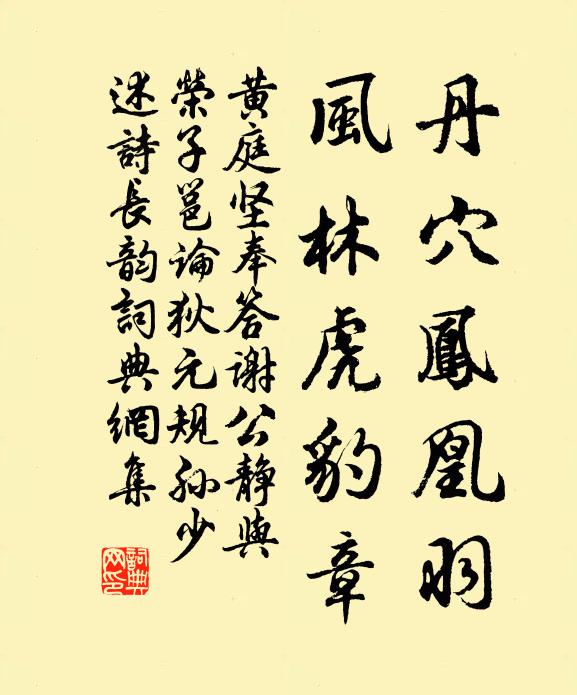 丹穴鳳凰羽
風林虎豹章
黄庭坚奉答謝公靜與
榮子邕論狄元規孫少
述詩長韵詞典網集
詞典
网印